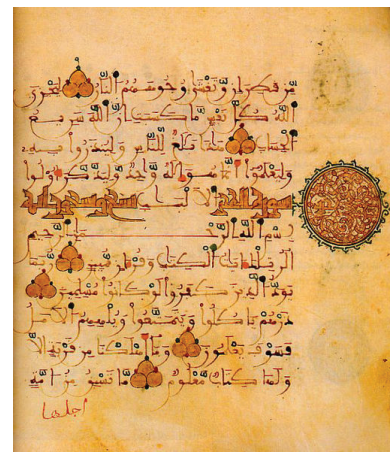 من قطران وتغشى وجوههم النار ليجزي
الله كل نفس ما كسبت إن الله سريع
الحساب هذا بلغ للناس ولينذروا به
وليعلموا أنما هو إله واحد وليذكر أولوا
سورة الحجر الألباب تسع وتسعون آية
بسم الله الرحمن الرحيم
الر تلك آيت الكتاب وقرءان مبين ربما
يود الذين كفروا لو كانوا مسلمين
ذرهم ياكلوا ويتمتعوا ويلههم الأمل
فسوف يعلمون وما أهلكنا من قرية إلا
ولها كتاب معلوم ما تسبق من أمة
أجلها